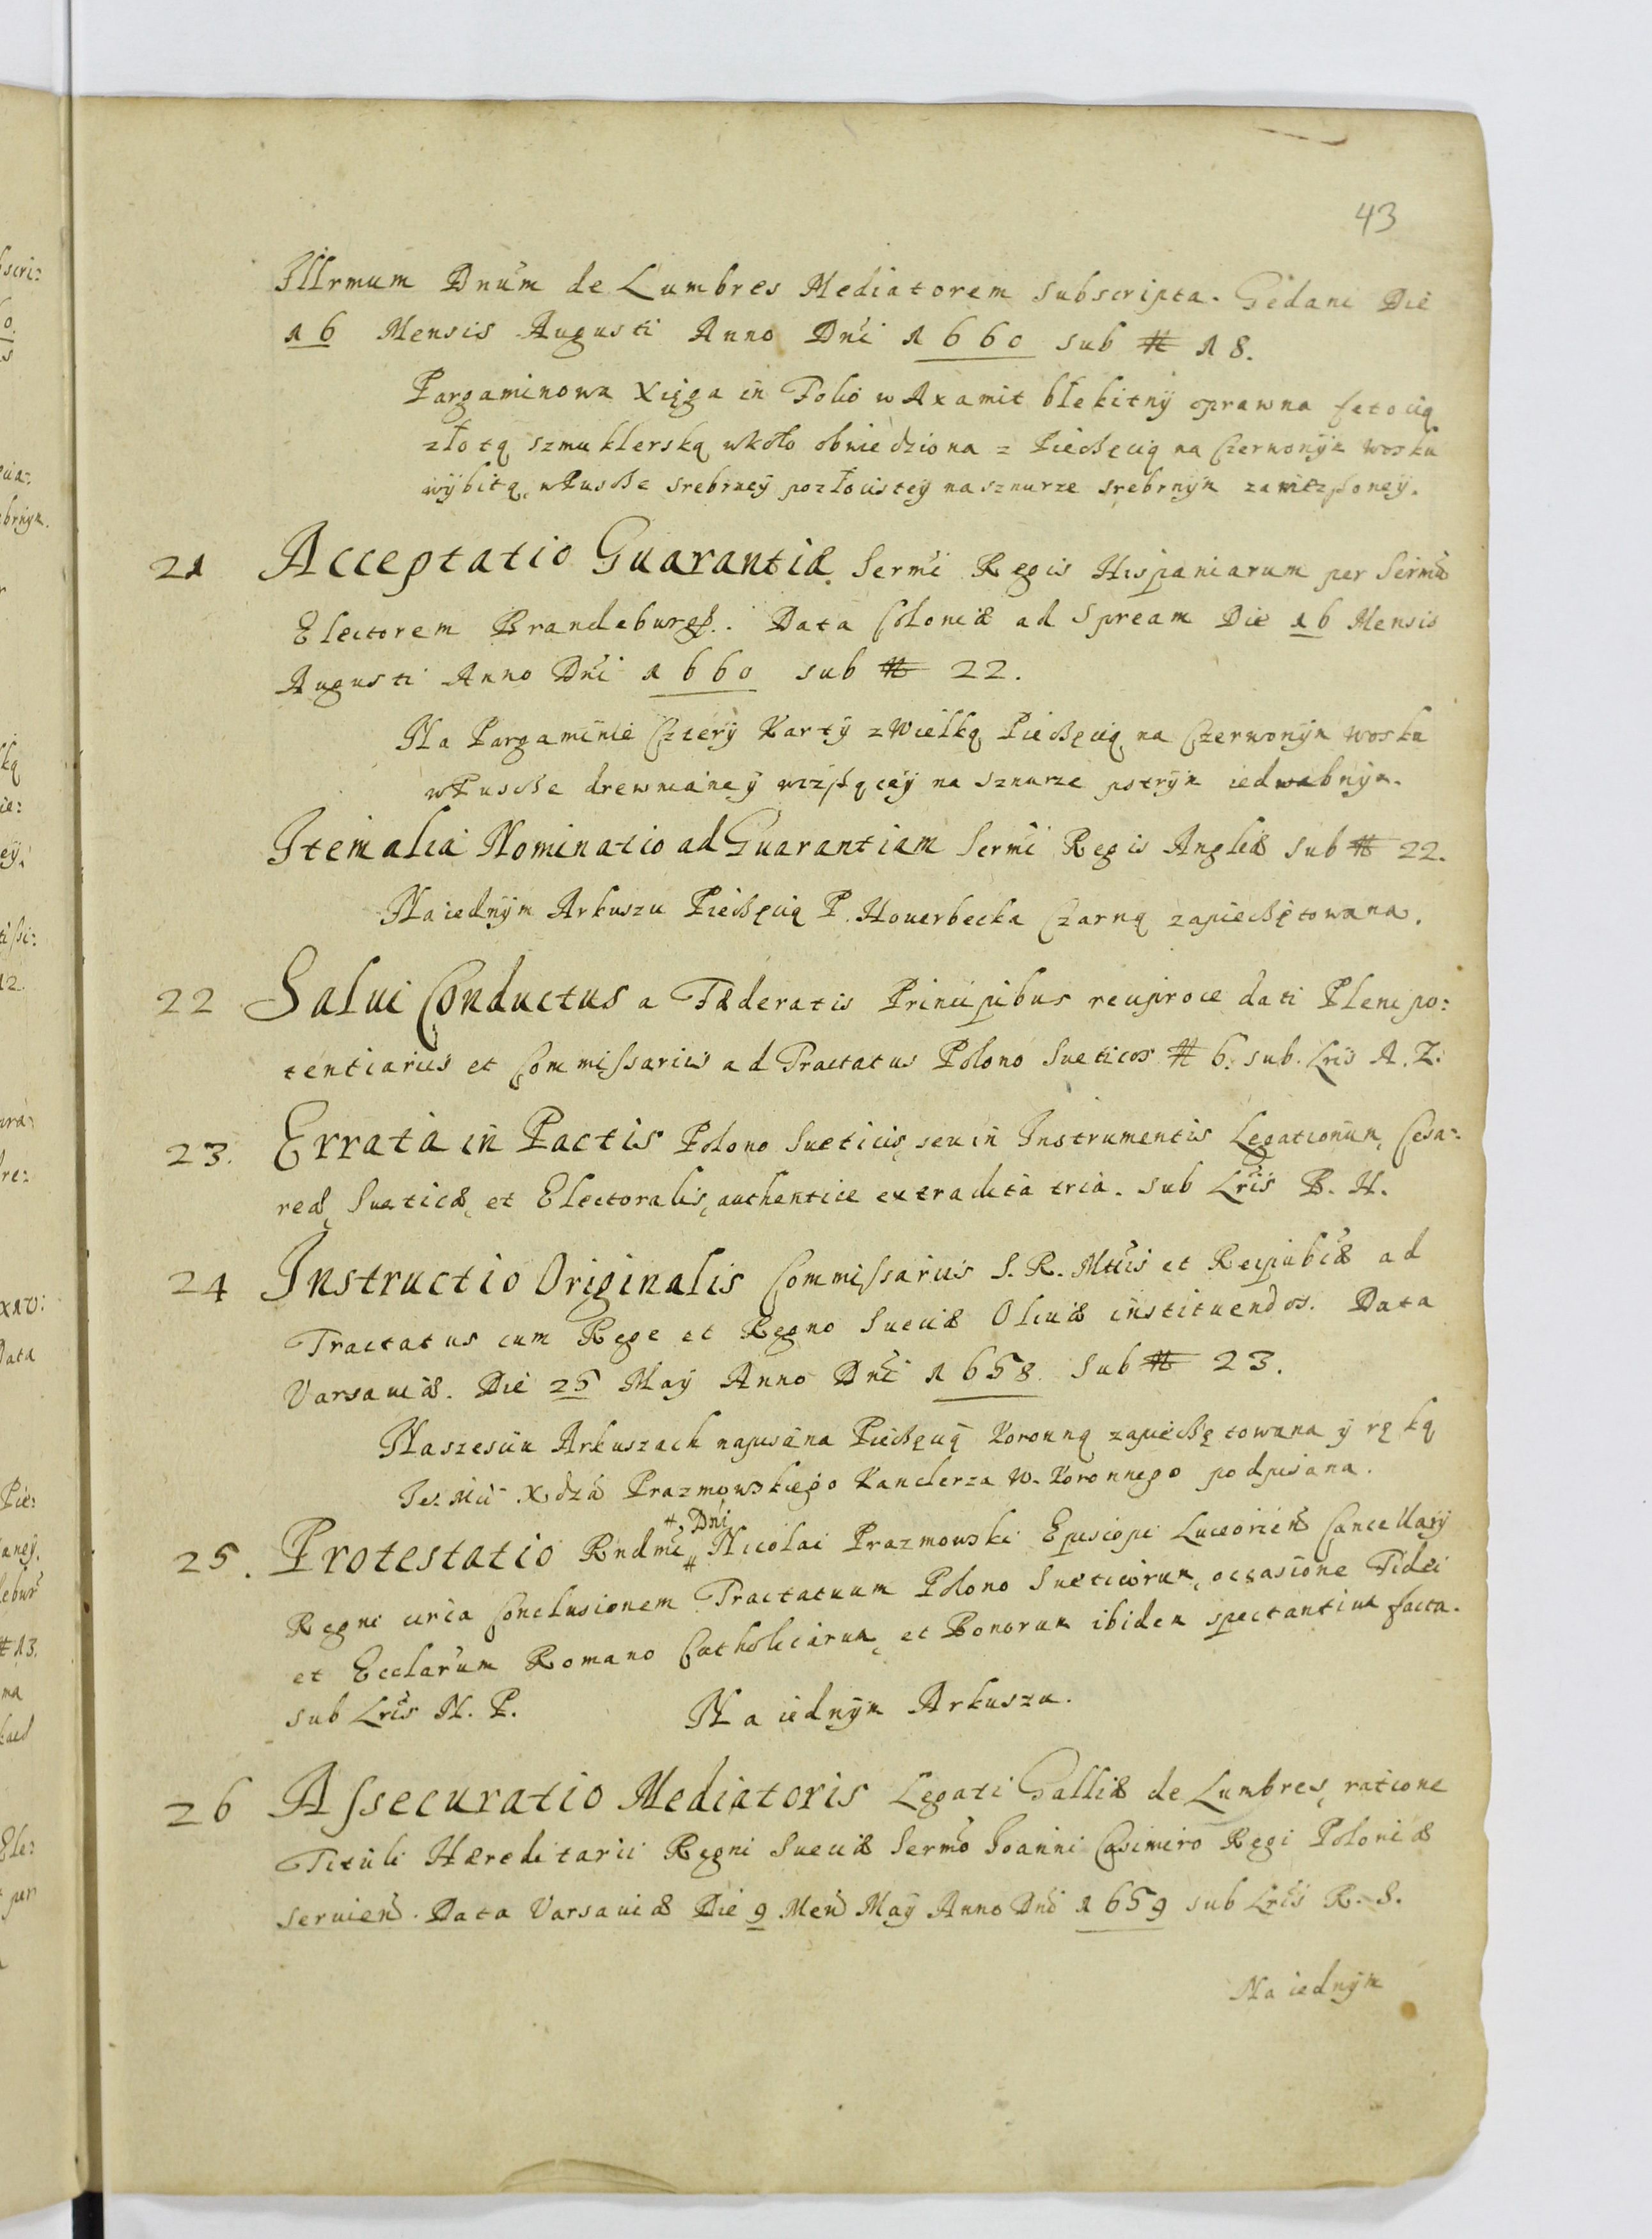 43
Illrmum Dnum de Lumbres Mediatorem subscripta. Gedani Die
16 Mensis Augusti Anno Dni 1660 sub # 18.
Pargaminowa Xięga in Folio w Axamit błekitnÿ oprawna
złotą szmuklerską wkoło obwiedziona z Pieczęcią na Czerwonÿm wosku
wÿbitą, w Pusze srebrneÿ pozłocisteÿ na sznurze srebrnÿm zawieszoneÿ.
21 Acceptatio Guarantiæ Sermi Regis Hispaniarum per Sermu
Electorem Brandeburg. Data Coloniæ ad Spream Die 16 Mensis
Augusti Anno Dni 1660 sub # 22.
Na Pargaminie Czterÿ Kartÿ z Wielką Pieczęcią na Czerwonÿm wosku
w Pusze drewnianeÿ wisząceÿ na sznurze pstrÿm iedwabnÿm.
Item alia Nominatio ad Guarantiam Sermi Regis Angliæ sub # 22.
Na iednÿm Arkuszu Pieczęcią P. Houerbecka Czarną zapieczętowana.
22 Salui Conductus a Fæderatis Principibus reciproce dati Plenipo:
tentiariis et Commissariis ad Tractatus Polono Sueticos # 6. sub. Lris A. Z.
23. Errata in Pactis Polono Sueticis, seu in Instrumentis Legationum, Cesa:
reæ, Sueticæ, et Electoralis, authentice extradita tria. sub Lris B. H.
24 Instructio Originalis Commissariis S. R. Mttis et Reipublcæ ad
Tractatus cum Rege et Regno Sueciæ Oliuæ instituendos. Data
Varsauiæ. Die 25 Maÿ Anno Dni 1658. Sub # 23.
Na sześciu Arkuszach napisana Pieczęcią Koronną zapieczętowana ÿ ręką
Je. Mci Xdza Prazmowskiego Kanclerza W. Koronnego podpisana.
# Dni
25. Protestatio Rndmi # Nicolai Prazmowski Episcopi Luceorien Cancellarÿ
Regni circa Conclusionem Tractatuum Polono Sueticorum, occasione Fidei
et Ecclarum Romano Catholicarum, et Bonorum ibidem spectantium facta.
sub Lris N. P. Na iednÿm Arkuszu.
26 Assecuratio Mediatoris Legati Galliæ de Lumbres, ratione
Tituli Hæreditarii Regni Sueciæ Sermo Joanni Casimiro Regi Poloniæ
seruien. Data Varsauiæ Die 9 Men Maÿ Anno Dni 1659 sub Lris R. S.
Na iednÿm